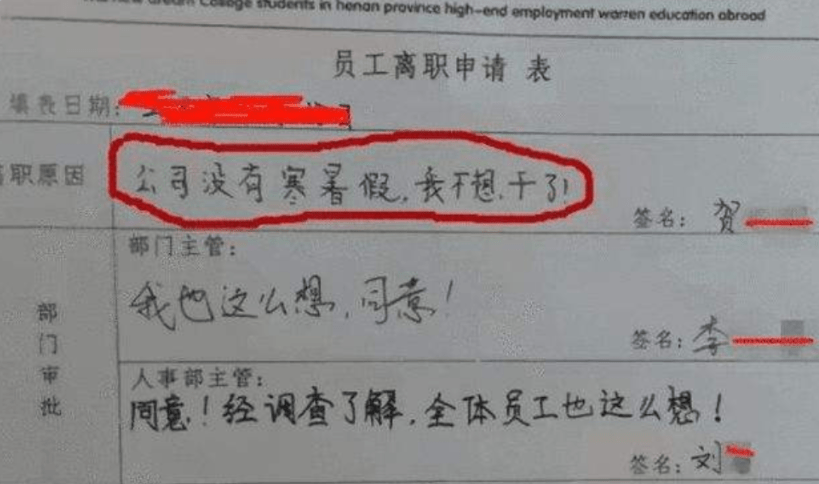 College students in henan province high-end employment warren education abroad
员工离职申请 表
填表日期:
职原因
公司没有寒暑假,我不想干了!
签名: 贺
部门审批
部门主管:
我也这么想,同意!
签名: 李
人事部主管:
同意!经调查了解,全体员工也这么想!
签名: 刘